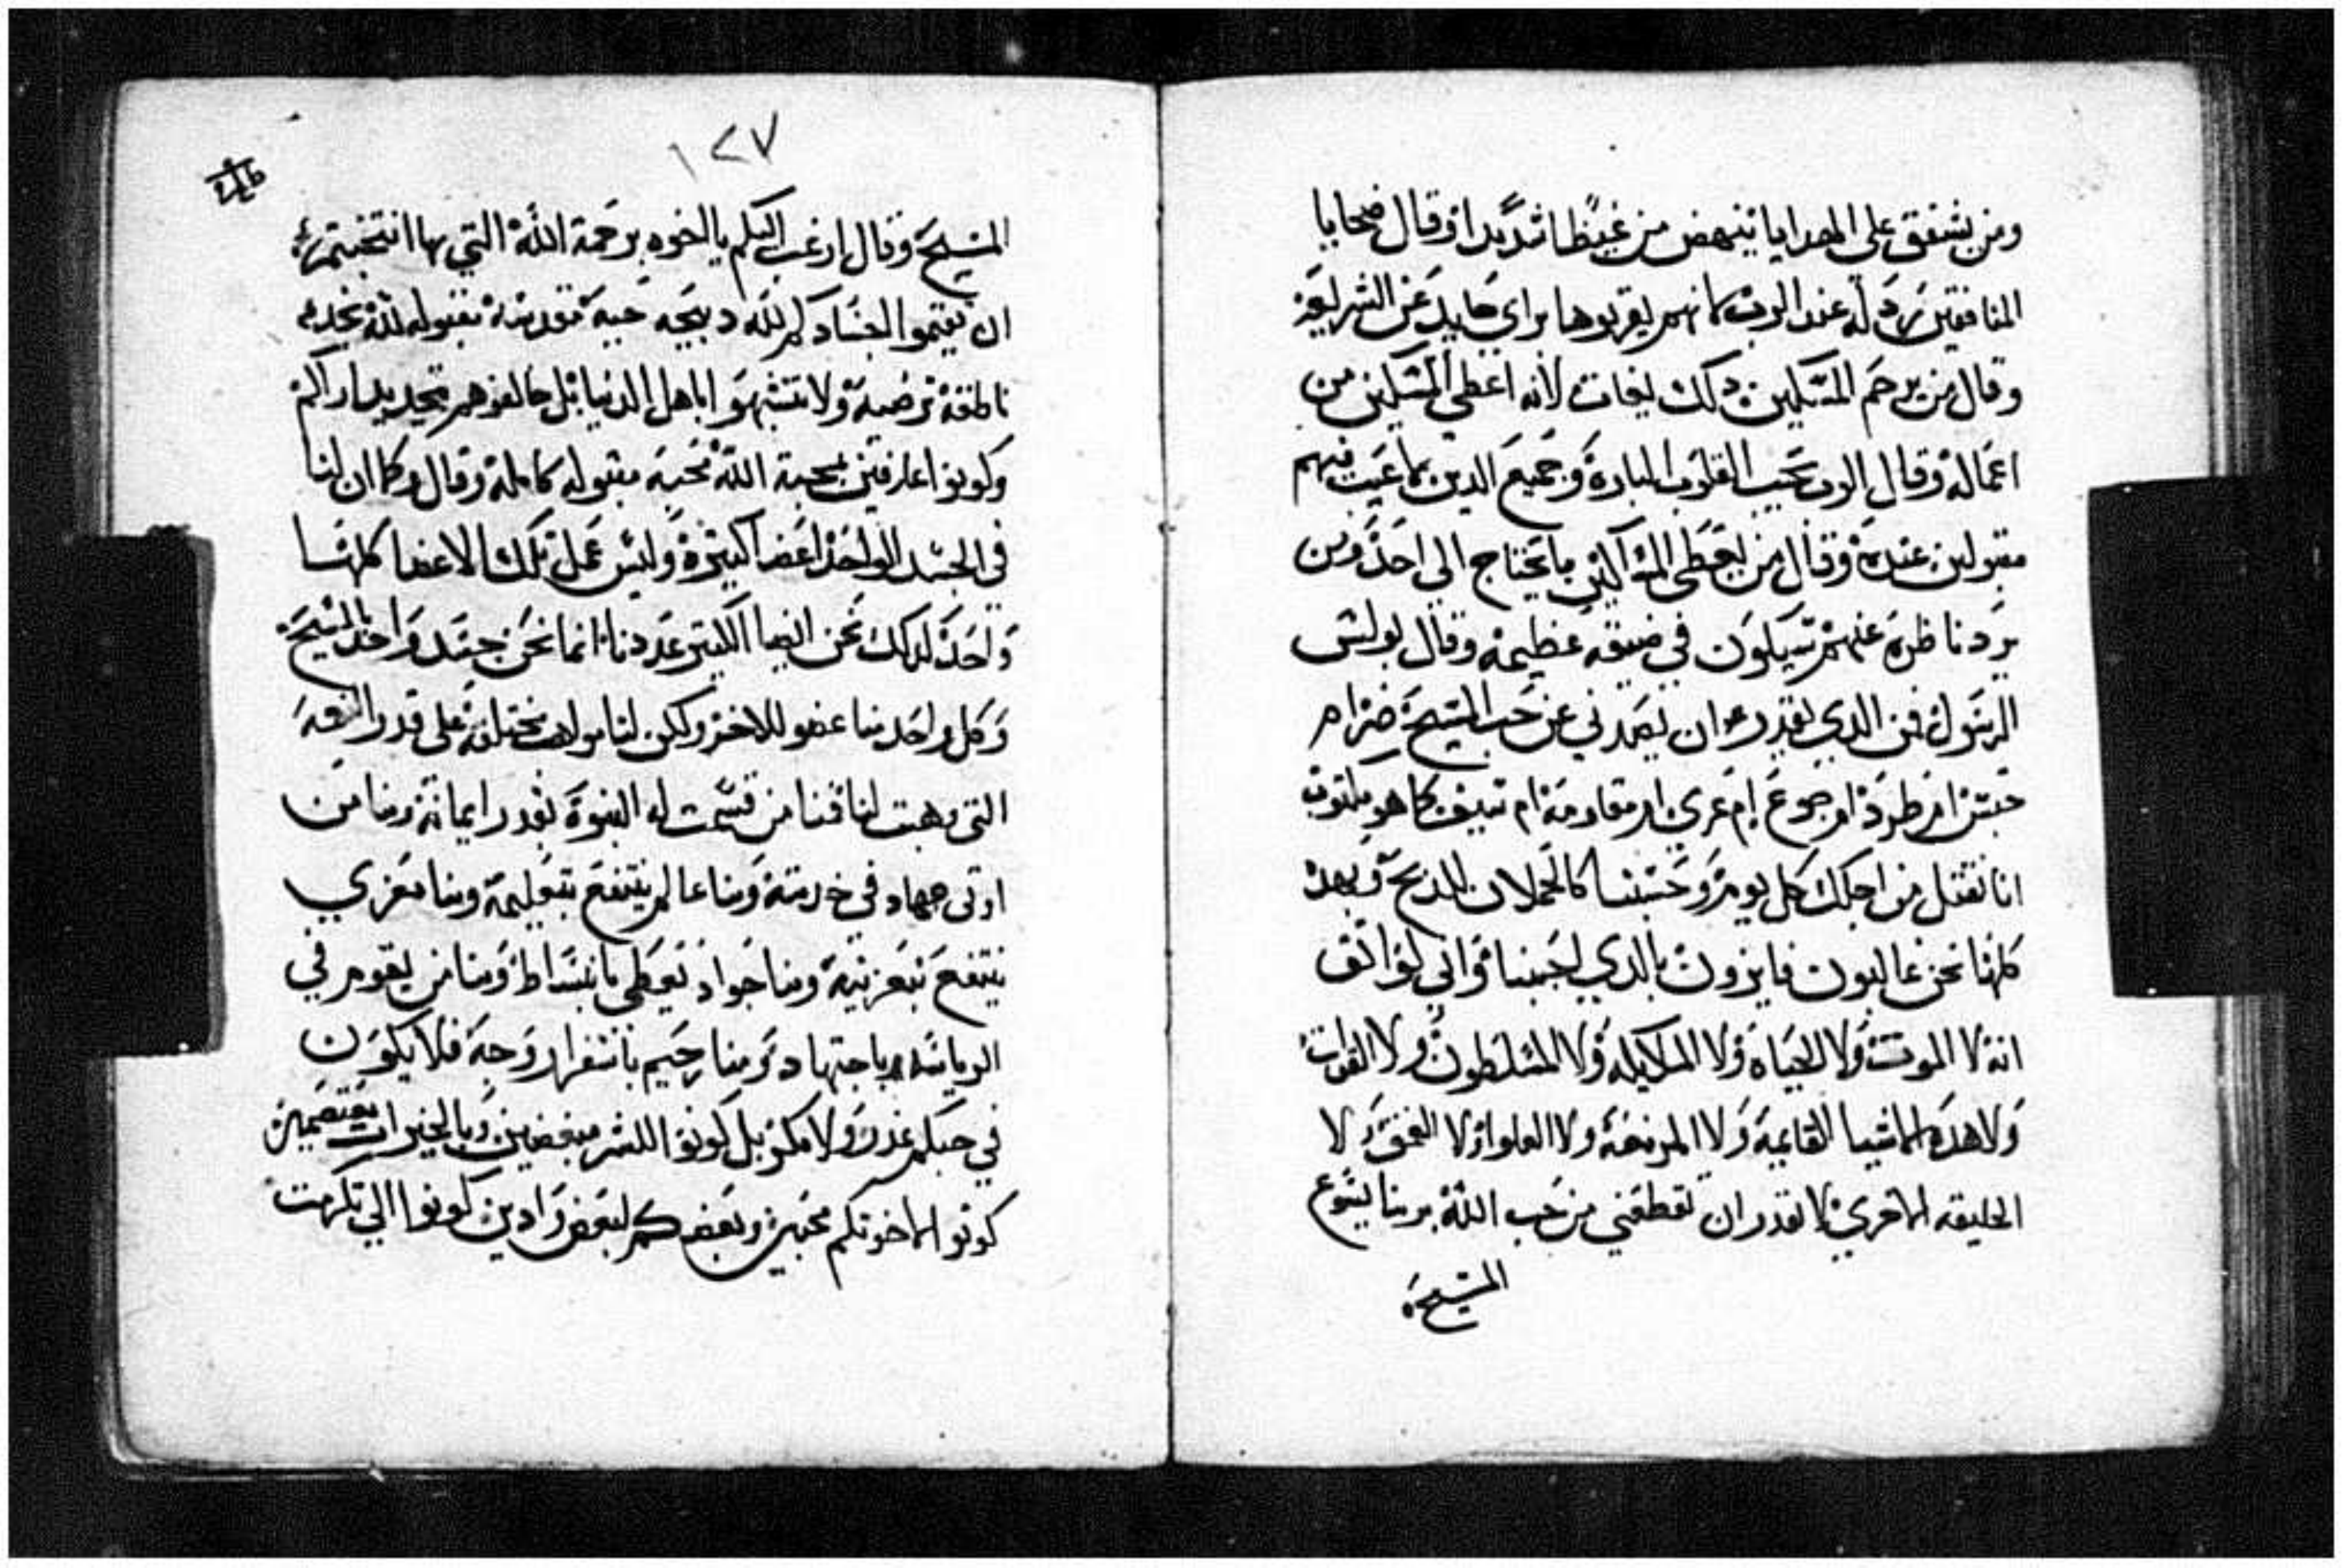 ومن يشفق على الهدايا ينهض من غيظا شديدا وقال ضحايا
المنافقين مردله عند الرب لانهم يقربوها براي حايد عن الشريعه
وقال من يرحم المسكين دلك يغات لانه اعطي المسكين من
اعماله وقال الرب يحب القلوب الباره وجميع الدين بلا عيب فيهم
مقبولين عنده وقال من يعطي المساكين ما يحتاج الي احد ومن
يرد ناظره عنهم سيكون في ضيقه عظيمه وقال بولس
الرسول فمن الدي يقدر ان يصدني عن حب المسيح ضر ام
حبس ام طرد ام جوع ام عري ام مقاومه ام سيف كما هو مكتوب
انا نقتل من اجلك كل يوم وحسبنا كالحملان للدبح وبهده
كلها نحن غالبون فايزون بالدي احبنا واني لواثق
انه لا الموت ولا الحياه ولا الملايكه ولا المسلطون ولا القوات
ولا هده الاشيا القايمه ولا المزمعه ولا العلو ولا العمق ولا
الخليقه الاخري لا تقدر ان تقطعني من حب الله بربنا يسوع
المسيح
١٢٧
المسيح وقال ارغب اليكم يا اخوه برحمة الله التي بها انتخبتم
ان تقيموا اجسادكم لله دبيحه حيه مقدسه مقبوله لله بخدمه
ناطقه مرضيه ولا تتشبهوا باهل الدنيا بل خالفوهم بتجديد اراكم
وكونوا عارفين بمحبة الله محبه مقبوله كامله وقال وكما ان لنا
في الجسد الواحد اعضا كثيره وليس عمل تلك الاعضا كلها
واحد لدلك نحن ايضا الكثير عددنا انما نحن جسد واحد بالمسيح
وكل واحد منا عضو للاخر ولكن لنا مواهب مختلفه على قدر النعمه
التي وهبت لنا فمنا من قسمت له النبوة بقدر ايمانه ومنا من
اوتي جهاد في خدمته ومنا عالم ينتفع بتعليمه ومنا معزي
ينتفع بتعزيته ومنا جواد يعطي بانبساط ومنا من يقوم في
الرياسه باجتهاد ومنا رحيم باستفرار وجه فلا يكون
في حبكم غدر ولا مكر بل كونوا للشر مبغضين وبالخيرات معتصمين
كونوا لاخوتكم محبين وبعضكم لبعض وادين كونوا الي تكرمت